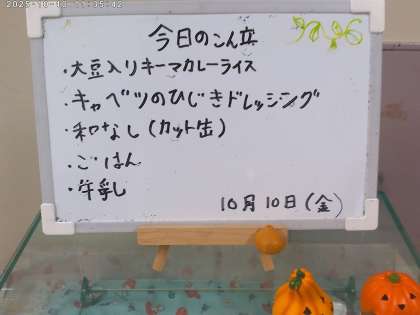 2025/10/13 11:35:42
今日のこん立
・大豆入りキーマカレーライス
・キャベツのひじきドレッシング
・和なし(カット缶)
・ごはん
・牛乳
10月10日(金)